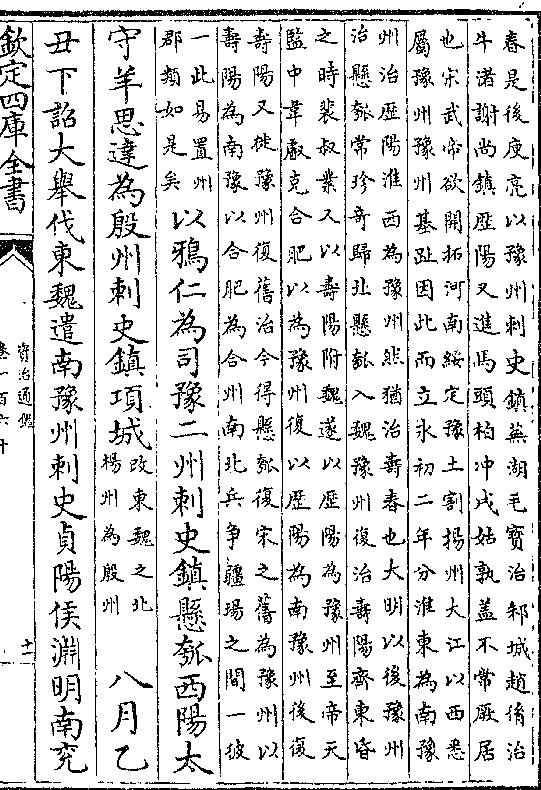 春是後庾亮以豫州刺史鎮蕪湖毛寳治邾城趙脩治
牛渚謝尚鎮歴陽又進馬頭柏冲戍姑孰盖不常厥居
也宋武帝欲開拓河南綏定豫土割揚州大江以西悉
屬豫州豫州基趾因此而立永初二年分淮東為南豫
州治歴陽淮西為豫州然猶治壽春也大明以後豫州
治懸瓠常珍竒歸北懸瓠入魏豫州復治壽陽齊東昏
之時裴叔業又以壽陽附魏遂以歴陽為豫州至帝天
監中韋叡克合肥以為豫州復以歴陽為南豫州後復
壽陽又徙豫州復舊治今得懸瓠復宋之舊為豫州以
壽陽為南豫以合肥為合州南北兵争疆塲之間一彼
一此易置州
郡類如是矣
以鴉仁為司豫二州刺史鎮懸瓠西陽太
守羊思達為殷州刺史鎮項城
改東魏之北
楊州為殷州
八月乙
丑下詔大舉伐東魏遣南豫州刺史貞陽侯淵明南兖
欽定四庫全書
資治通鑑
卷一百六十
十一